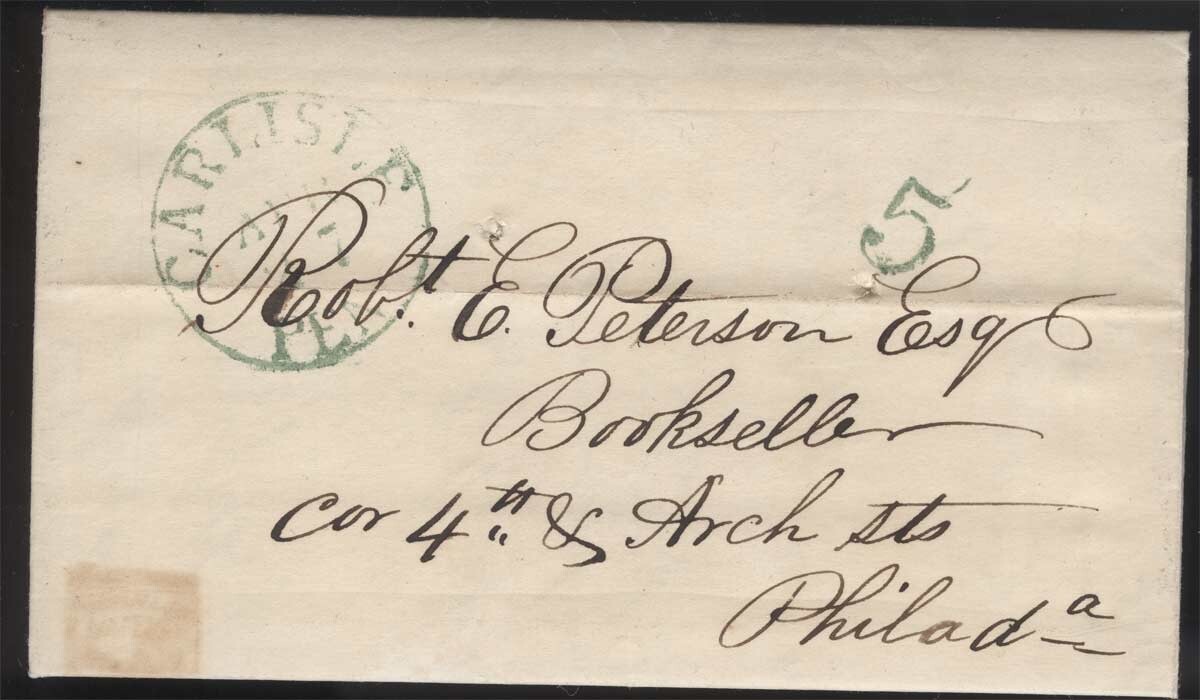 CARLISLE
APR
7
5
Robt. E. Peterson Esq
Bookseller
cor 4th & Arch sts
Philada